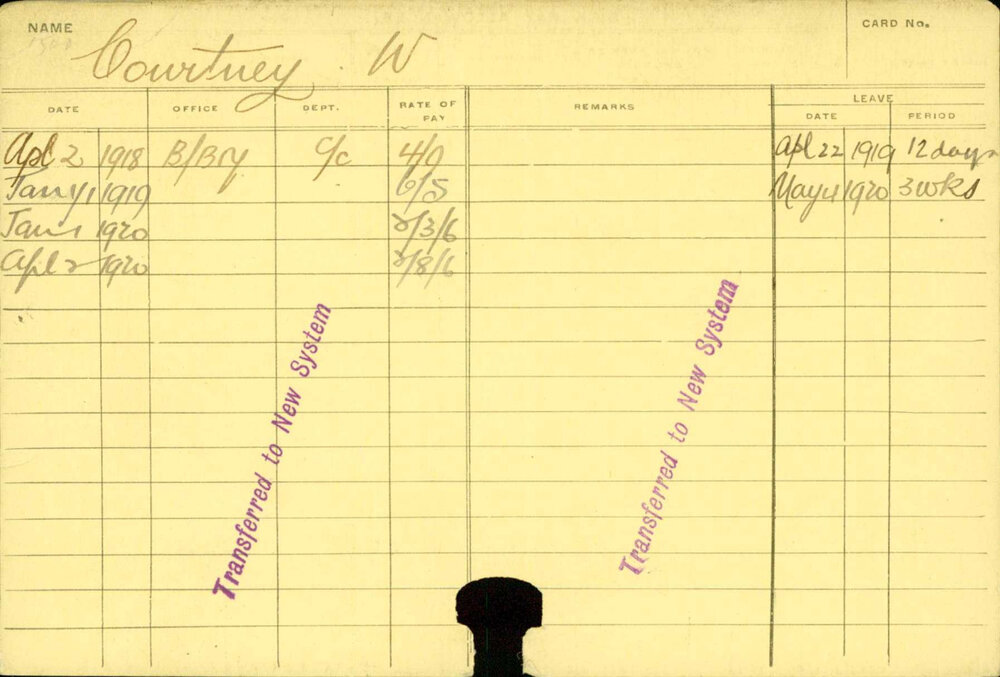 NAME
CARD No.
Courtney. W
DATE OFFICE DEPT. RATE OF PAY REMARKS LEAVE
DATE PERIOD
Apl 2 1918 B/Bry C/c 4/0 Apl 22 1919 12 days
Jany 1 1919 6/5 May 4 1920 3 wks
Jan 1 1920 2/3/6
Apl 2 1920 2/8/6
Transferred to New System
Transferred to New System